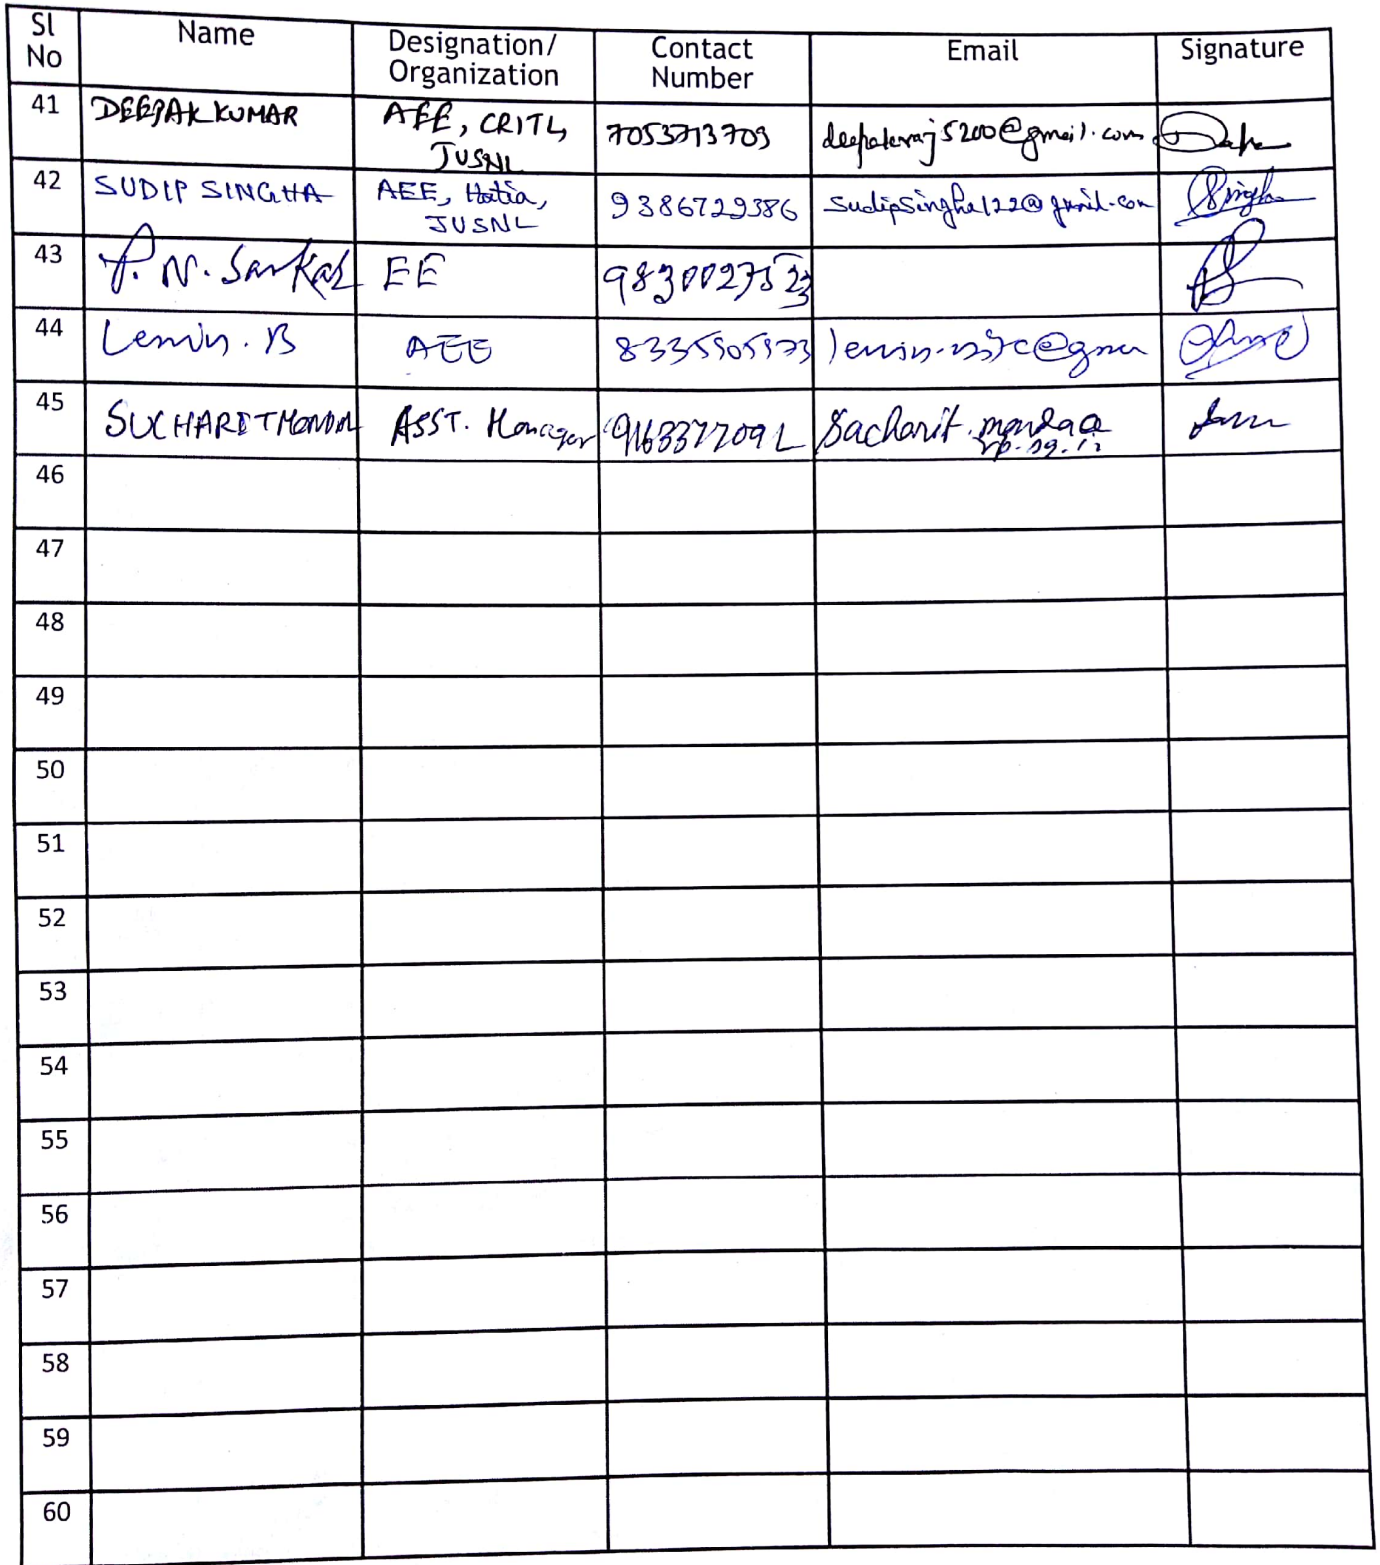 Sl No Name Designation/ Organization Contact Number Email Signature
41 DEEPAK KUMAR AEE, CRITL, JUSNL 7053713703 deepakraj5200@gmail.com
42 SUDIP SINGHA AEE, Hatia, JUSNL 9386729386 sudipsingha122@gmail.com Singha
43 P. N. Sarkar EE
44 Lenin. B AEE 8335905973
45 SUCHARIT MONDAL ASST. Manager
46
47
48
49
50
51
52
53
54
55
56
57
58
59
60